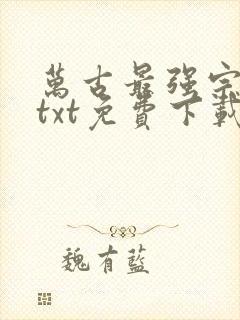 萬古最强宗
txt免費下載
魏有藍